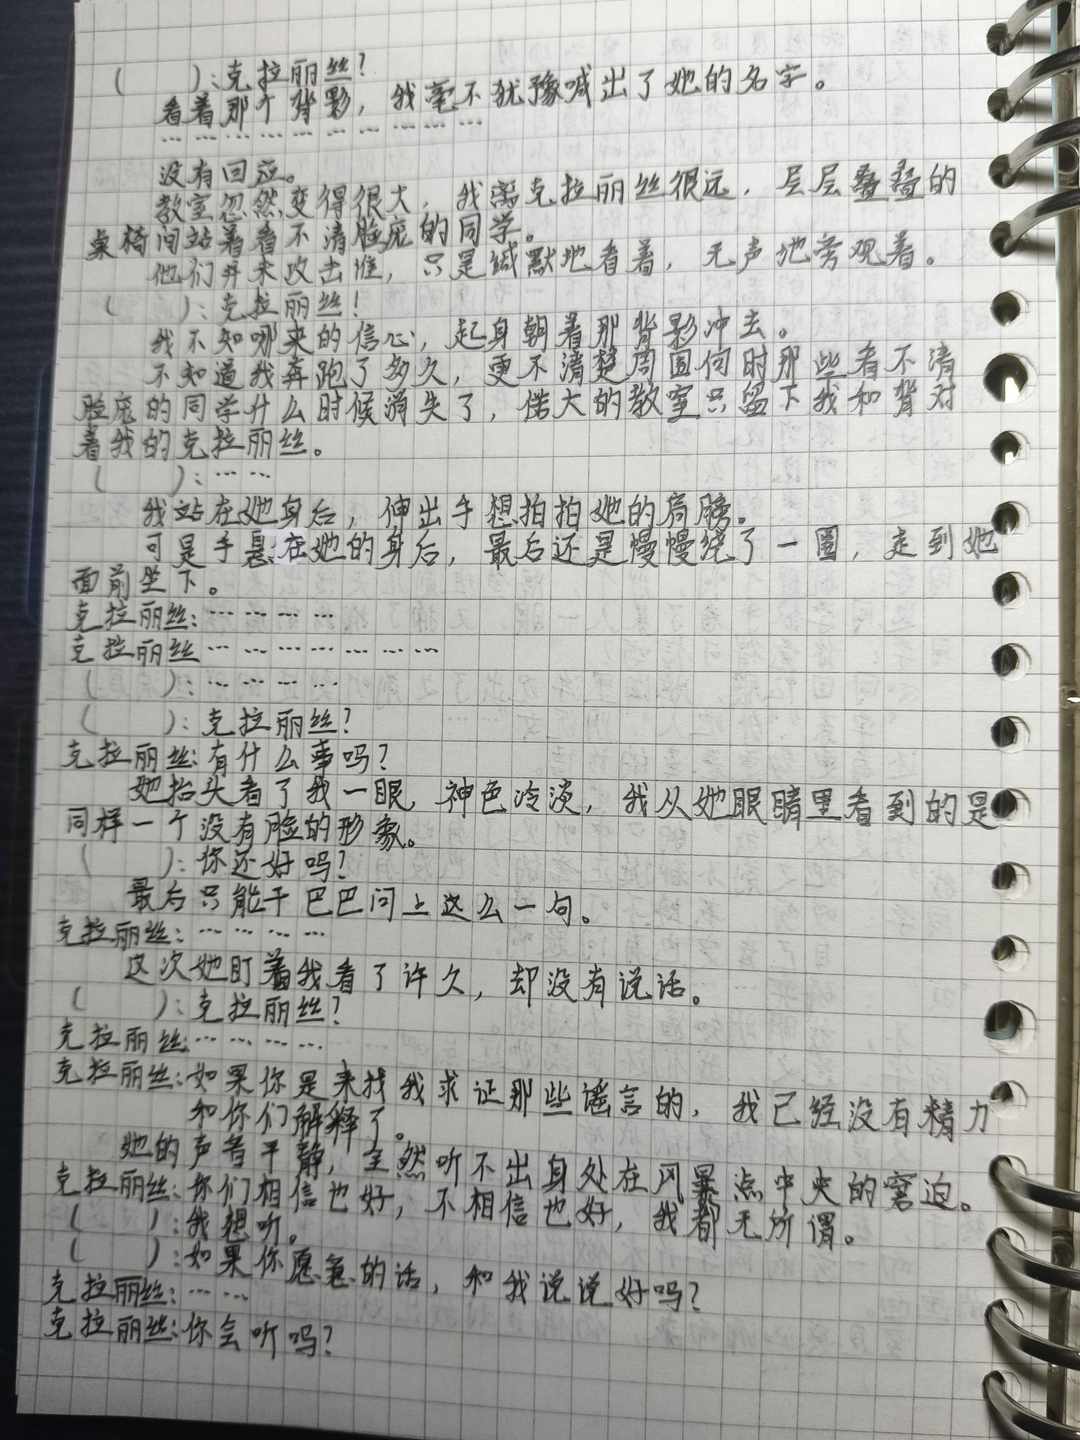 (    ):克拉丽丝?
看着那个背影，我毫不犹豫喊出了她的名字。
………………………
没有回应。
教室忽然变得很大，我离克拉丽丝很远，层层叠叠的
桌椅间站着看不清脸庞的同学。
他们并未攻击谁，只是缄默地看着，无声地旁观着。
(    ):克拉丽丝!
我不知哪来的信心，起身朝着那背影冲去。
不知道我奔跑了多久，更不清楚周围何时那些看不清
脸庞的同学什么时候消失了，偌大的教室只留下我和背对
着我的克拉丽丝。
(    ):……
我站在她身后，伸出手想拍拍她的肩膀。
可是手悬在她的身后，最后还是慢慢绕了一圈，走到她
面前坐下。
克拉丽丝:…………
克拉丽丝…………………
(    ):…………
(    ):克拉丽丝?
克拉丽丝:有什么事吗?
她抬头看了我一眼，神色冷淡，我从她眼睛里看到的是
同样一个没有脸的形象。
(    ):你还好吗?
最后只能干巴巴问上这么一句。
克拉丽丝:…………
这次她盯着我看了许久，却没有说话。
(    ):克拉丽丝?
克拉丽丝:…………
克拉丽丝:如果你是来找我求证那些谣言的，我已经没有精力
和你们解释了。
她的声音平静，全然听不出身处在风暴点中央的窘迫。
克拉丽丝:你们相信也好，不相信也好，我都无所谓。
(    ):我想听。
(    ):如果你愿意的话，和我说说好吗?
克拉丽丝:……
克拉丽丝:你会听吗?